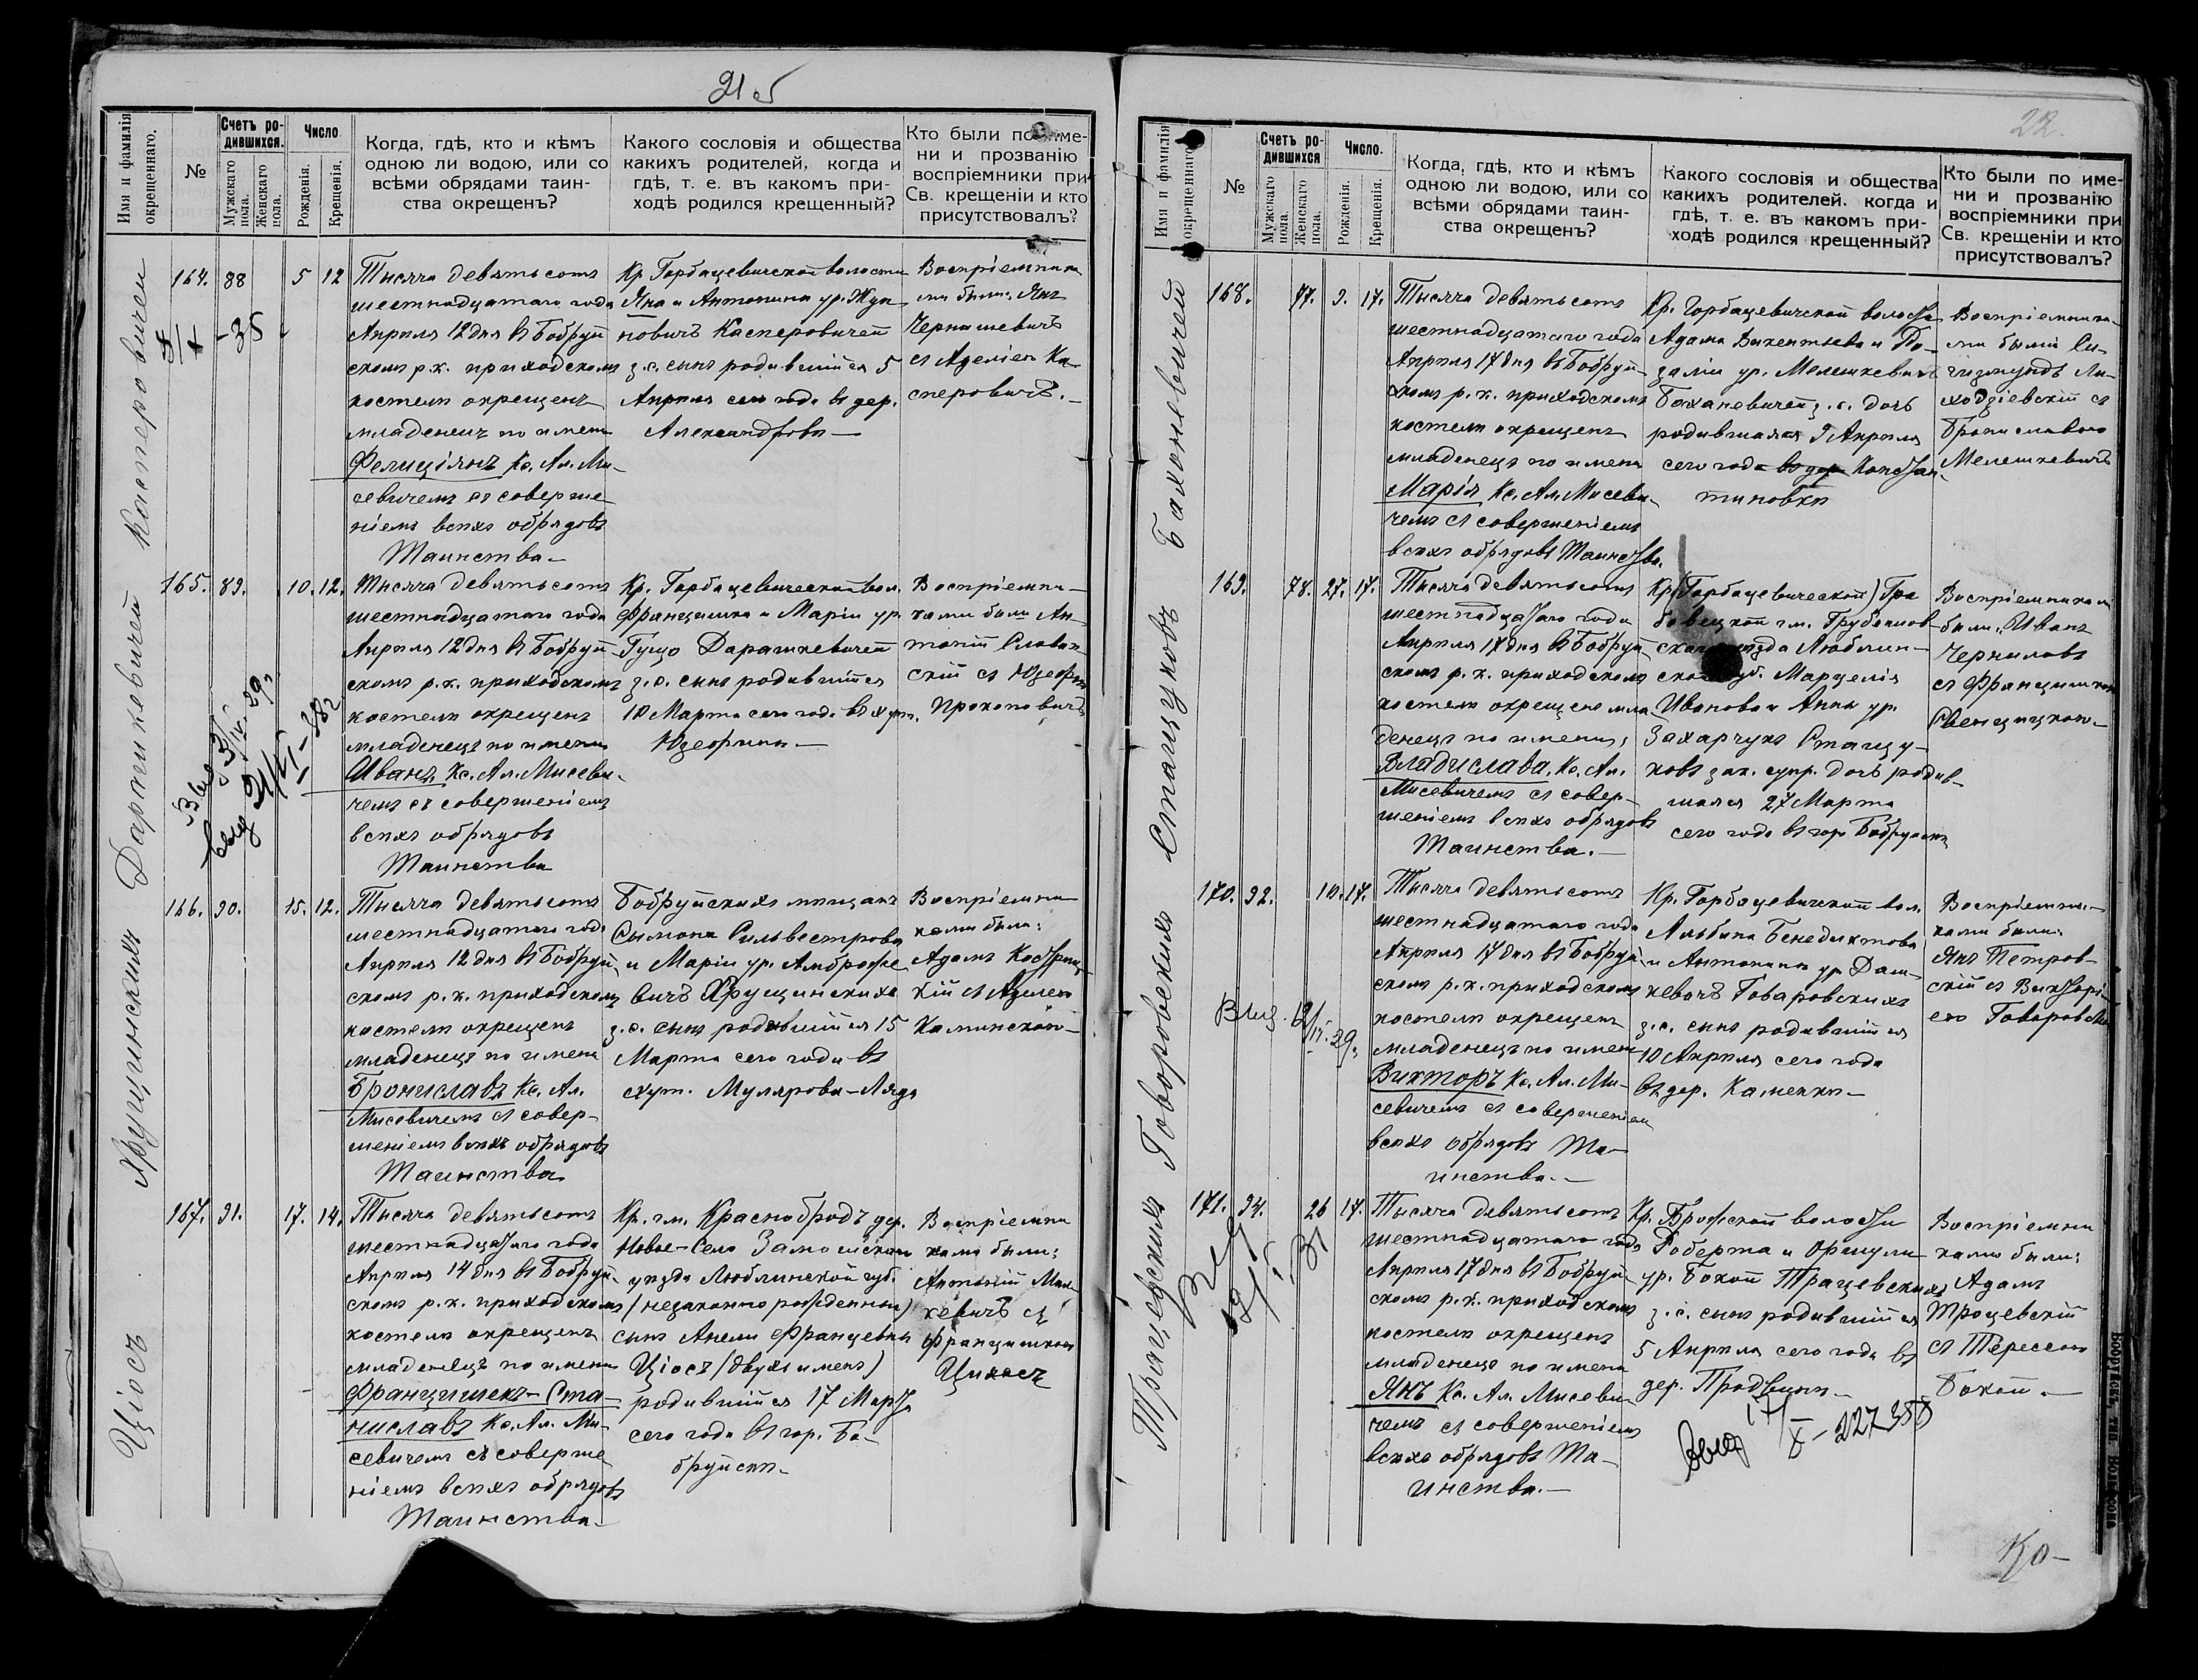 21 об
Имя и фамилія окрещеннаго.
№
Счетъ родившихся.
Мужскаго пола.
Женскаго пола.
Число
Рожденія.
Крещенія.
Когда, гдѣ, кто и кѣмъ
одною ли водою, или со
всѣми обрядами таин-
ства окрещенъ?
Какого сословія и общества
какихъ родителей, когда и
гдѣ, т. е. въ какомъ при-
ходѣ родился крещенный?
Кто были по име-
ни и прозванію
воспріемники при
Св. крещеніи и кто
присутствовалъ?
Касперовичей
164. 88 5 12
Тысяча девятьсотъ
шестнадцатаго года
Апрѣля 12 дня въ Бобруй
скомъ р.к. приходскомъ
костелѣ окрещенъ
младенецъ по имени
Фелиціянъ Кс. Ал. Ми-
севичемъ съ соверше
ніемъ всѣхъ обрядовъ
Таинства-
Кр. Горбацевичской волости
Яна и Антонины ур. Жда
новичъ Касперовичей
з.с. сынъ родившійся 5
Апрѣля сего года въ дер.
Александровѣ-
Воспріемника
ми были: Янъ
Чернышевичъ
съ Аделіею Ка-
сперовичъ.-
Дарашкевичей
165. 89. 10. 12.
Тысяча девятьсотъ
шестнадцатаго года
Апрѣля 12 дня въ Бобруй
скомъ р.к. приходскомъ
костелѣ окрещенъ
младенецъ по имени
Иванъ, Кс. Ал. Мисеви-
чемъ съ совершеніемъ
всѣхъ обрядовъ
Таинства
Кр. Горбацевической вол.
Францишка и Маріи ур.
Гущо Дарашкевичей
з.с. сынъ родившійся
10 Марта сего года въ хут.
Юзефинѣ-
Воспріемни-
ками были Ан-
тоній Слови
скій съ Юзефою
Прокоповичъ
Хрущинскихъ
166. 90. 15. 12.
Тысяча девятьсотъ
шестнадцатаго года
Апрѣля 12 дня въ Бобруй
скомъ р.к. приходскомъ
костелѣ окрещенъ
младенецъ по имени
Брониславъ Кс. Ал.
Мисевичемъ съ совер-
шеніемъ всѣхъ обрядовъ
Таинства
Бобруйскихъ мѣщанъ
Сымона Сильвестрова
и Маріи ур. Амброже
вичъ Хрущинскихъ
з.с. сынъ родившійся 15
Марта сего года въ
хут. Мулярова-Лядо
Воспріемни
ками были:
Адамъ
кій съ Аделею
Каминской-
Ціосъ
167. 91. 17. 14.
Тысяча девятьсотъ
шестнадцатаго года
Апрѣля 14 дня въ Бобруй
скомъ р.к. приходскомъ
костелѣ окрещенъ
младенецъ по имени
Францишекъ-Ста-
ниславъ Кс. Ал. Ми-
севичемъ съ соверше
ніемъ всѣхъ обрядовъ
Таинства-
Кр. гм. Краснобродъ дер.
Новое-Село Замойскаго
уѣзда Люблинской губ.
(незаконно рожденный)
сынъ Анели Францевны
Ціосъ (двухъ именъ)
родившійся 17 Марта
сего года въ гор. Бо-
бруйскѣ-
Воспріемни
ками были:
Антоній
кевичъ съ
Францишкою
22.
Имя и фамилія окрещеннаго.
№
Счетъ родившихся
Мужскаго пола.
Женскаго пола.
Число.
Рожденія.
Крещенія.
Когда, гдѣ, кто и кѣмъ
одною ли водою, или со
всѣми обрядами таин-
ства окрещенъ?
Какого сословія и общества
какихъ родителей. когда и
гдѣ, т. е. въ какомъ при-
ходѣ родился крещенный?
Кто были по име-
ни и прозванію
воспріемники при
Св. крещеніи и кто
присутствовалъ?
Баханевичей
168. 77. 9. 17.
Тысяча девятьсотъ
шестнадцатаго года
Апрѣля 17 дня въ Бобруй
скомъ р.к. приходскомъ
костелѣ окрещенъ
младенецъ по имени
Марія Кс. Ал. Мисеви-
чемъ съ совершеніемъ
всѣхъ обрядовъ Таинства.
Кр. Горбацевичской волости
Адама Викентьева и Ро-
заліи ур. Мелешкевичъ
Баханевичей з.с. дочь
родившаяся 9 Апрѣля
сего года въ дер. Констан-
тиновкѣ
Воспріемника-
ми были Си-
гизмундъ Ли-
ходзіевскій съ
Брониславою
Мелешкевичъ
Стащуковъ
169. 78. 27. 17.
Тысяча девятьсотъ
шестнадцатаго года
Апрѣля 17 дня въ Бобруй
скомъ р.к. приходскомъ
костелѣ окрещено мла
денецъ по имени,
Владислава, Кс. Ал.
Мисевичемъ съ совер-
шеніемъ всѣхъ обрядовъ
Таинства.-
Кр. (Горбацевической) Гра
бовецкой гм. Грубешов-
скаго уѣзда Люблин-
ской губ. Марцелія
Иванова и Анны ур.
Захарчукъ Стащу-
ковъ зак. супр. дочь родив-
шаяся 27 Марта
сего года въ гор. Бобруйскѣ
Воспріемниками
были: Иванъ
Черниловъ
съ Францишкою
Свенцицкой.-
Говоровскихъ
170. 92. 10. 17.
Тысяча девятьсотъ
шестнадцатаго года
Апрѣля 17 дня въ Бобруй
скомъ р.к. приходскомъ
костелѣ окрещенъ
младенецъ по имени
Викторъ Кс. Ал. Ми-
севичемъ съ совершеніем
всѣхъ обрядовъ Та-
инства.-
Кр. Горбацевичской вол.
Альбина Бенедиктова
и Антонины ур. Даш-
кевичъ Говаровскихъ
з.с. сынъ родившійся
10 Апрѣля сего года
въ дер. Каменкѣ-
Воспріемни-
ками были:
Янъ Петров-
скій съ Викторі-
ею
Трацевскихъ
171. 94. 26 17.
Тысяча девятьсотъ
шестнадцатаго года
Апрѣля 17 дня въ Бобруй
скомъ р.к. приходскомъ
костелѣ окрещенъ
младенецъ по имени
Янъ Кс. Ал. Мисеви-
чемъ съ совершеніемъ
всѣхъ обрядовъ Та-
инства.-
Кр. Брожской волости
Роберта и Оршули
ур. Бокой Трацевскихъ
з.с. сынъ родившійся
5 Апрѣля сего года въ
дер. Продвинѣ-
Воспріемни
ками были:
Адамъ
Троцевскій
съ Тересею
Бокой.-